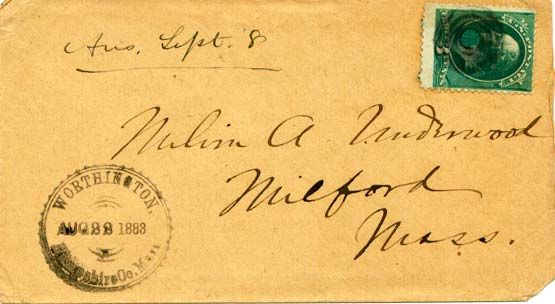 Ans. Sept. 8
A. Underwood
Milford
Mass.
WORTHINGTON,
AUG 28 1883
Hampshire Co. Mass